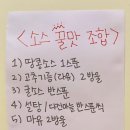 <소스 꿀맛 조합>
1) 땅콩소스 1스푼
2) 고추기름 (라유) 2방울
3) 굴소스 반스푼
4) 설탕 / 다진마늘 반스푼씩
5) 마유 2방울